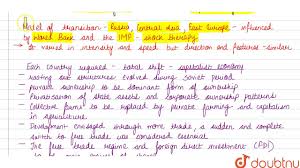 Model of transition - Russia, Central Asia, East Europe - influenced
by World Bank and the IMF - shock therapy.
It varied in intensity and speed but direction and features similar.
Each country required - total shift - capitalist economy
rooting out structures evolved during Soviet period
private ownership to be dominant form of ownership
Privatisation of state assets and corporate ownership patterns
Collective farms to be replaced by private farming and capitalism
in agriculture
Development envisaged through more trade, a sudden and complete
switch to free trade was considered essential
The free trade regime and foreign direct investment (FDI)
doubtnut